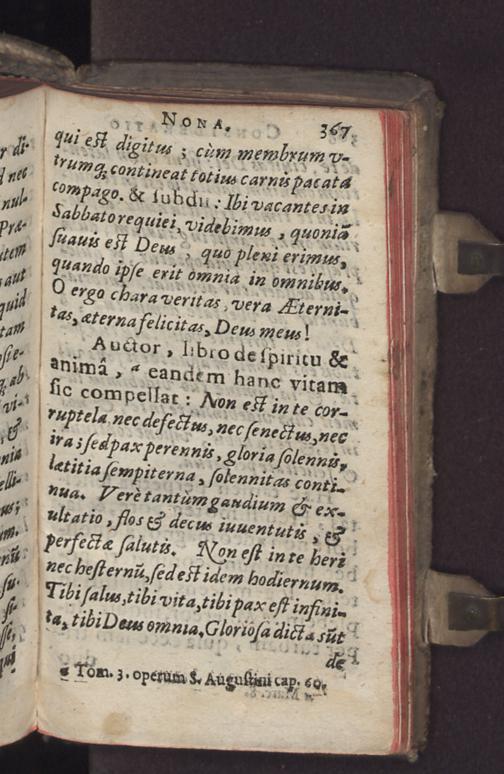 NONA. 367
qui est digitus; cùm membrum v-
trumq; contineat totius carnis pacata
compago. & subdit: Ibi vacantes in
Sabbato requiei, videbimus, quoniã
suauis est Deus, quo pleni erimus,
quando ipse erit omnia in omnibus.
O ergo chara veritas, vera Æterni-
tas, æterna felicitas, Deus meus!
Auctor, libro de spiritu &
animâ, a eandem hanc vitam
sic compellat: Non est in te cor-
ruptela, nec defectus, nec senectus, nec
ira; sed pax perennis, gloria solennis,
lætitia sempiterna, solennitas conti-
nua. Verè tantùm gaudium & ex-
ultatio, flos & decus iuuentutis, &
perfectæ salutis. Non est in te heri
nec hesternũ, sed est idem hodiernum.
Tibi salus, tibi vita, tibi pax est infini-
ta, tibi Deus omnia. Gloriosa dicta sũt
de
a Tom. 3. operum S. Augustini cap. 60.